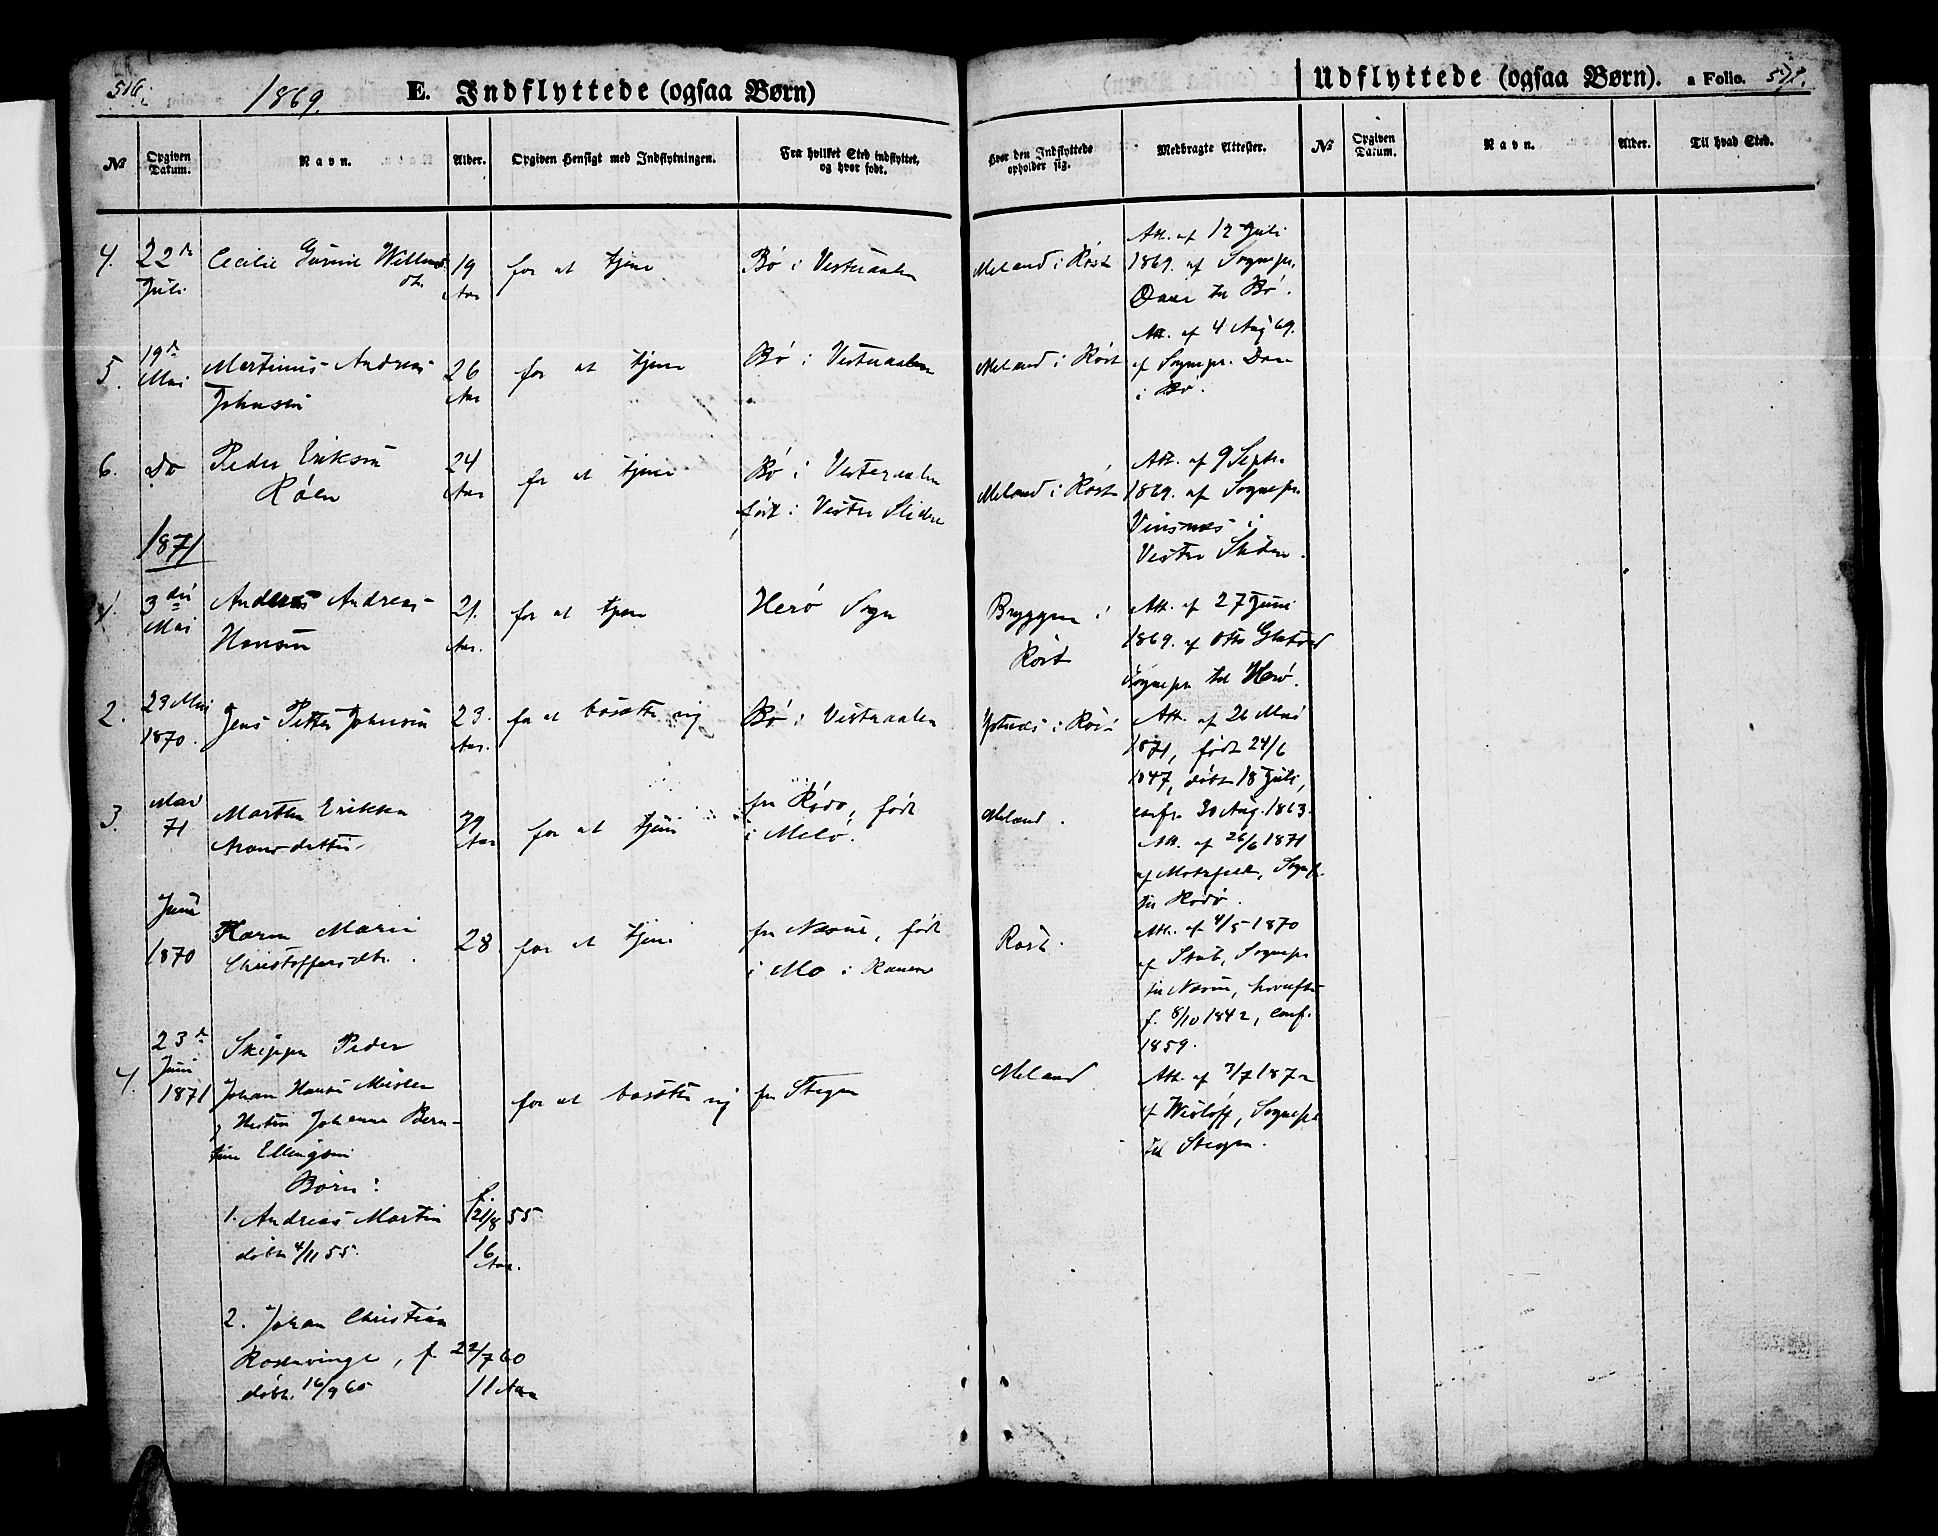 516.
1869.
E. Indflyttede (ogsaa Børn)
Udflyttede (ogsaa Børn).
a Folio.
No
Opgiven Datum.
Navn.
Alder.
Opgiven Hensigt med Indflytningen.
Fra hvilket Sted indflyttet, og hvor født.
Hvor den Indflyttede opholder sig.
Medbragte Attester.
No
Opgiven Datum.
Navn.
Alder.
Til hvad Sted.
4.
22de
Juli
Cecilie
19
Aar
for at tjene
Bø i Vesteraalen
Meland i Røst
Att. af 12 Juli
1869. af Sognepr.
Daae til Bø.
5.
19de
Mai
Martinus Andreas
Johnsen
26
Aar
for at tjene
Bø i Vesteraalen
Meland i Røst
Att. af 4 Aug 69.
af Sognepr. Daae
i Bø.
6.
Do
Peder Eriksen
Røen
24
Aar
for at tjene
Bø i Vesteraalen
født i Vestre Slidre
Meland i Røst
Att. af 9 Septr.
1869. af Sognepr.
i
Vestre Slidre.
1871
1.
3die
Mai
Andreas Andreas
Hansen
21.
Aar.
for at tjene
Herø Sogn
Bryggen i
Røst
Att. af 27 Juni
1869. af Otto
Sognepr til Herø.
2.
29 Mai
1870.
Jens Petter Johnsen
23.
Aar.
for at bosætte sig
Bø i Vesteraalen
i Røst
Att. af 26 Mai
1871, født 24/6
1847, døbt 18 Juli,
confr. 30 Aug. 1863.
3.
Mai
71
Martha Erikka
Aronsdatter
29
Aar
for at tjene
fra Rødø, født
i Melø.
Meland.
Att. af 26/6 1871
af Motzfeldt, Sognepr.
til Rødø.
Juni
1870
Karen Marie
Christoffersdtr.
28
for at tjene
fra Næsne, født
i Mo i Ranen
Røst.
Att. af 4/5 1870
af Stub, Sognepr
til Næsne, hvorefter
f. 8/10 1842, Conf.
1859.
4.
23de
Juni
1871
Skipper Peder
Johan Hansen
og Hustru Johanna Bern-
tine Ellingsen
for at bosætte sig
fra Stegen
Meland
Att. af 3/7 1872
af Wisløff, Sognepr
til Stegen.
Børn:
1. Andreas Martin
f. 21/8 55
døbt 4/11 55.
16
Aar.
2. Johan Christian
Rosenvinge, f. 22/7 60
døbt. 16/9 60
11 Aar